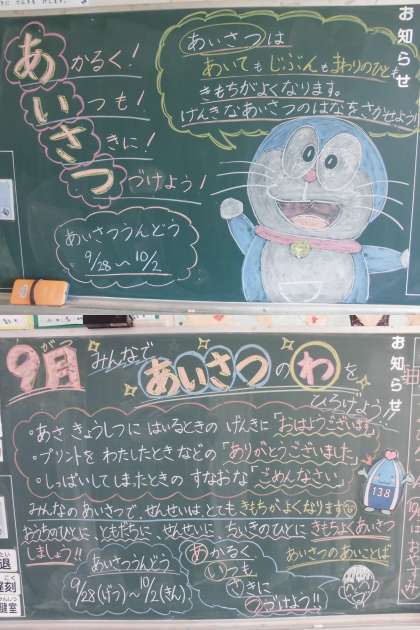 お知らせ
あかるく!
いつも!
さきに!
つづけよう!
あいさつは
あいても じぶんも まわりのひとも
きもちがよくなります。
げんきなあいさつのはなをさかせよう!
あいさつうんどう
9/28 〜 10/2
お知らせ
9月 みんなで あいさつのわを
ひろげよう!!
・あさ きょうしつに はいるときの げんきに「おはようございます」
・プリントを わたしたときなどの「ありがとうございました」
・しっぱいしてしまったときの すなおな「ごめんなさい」
138
みんなの あいさつで、せんせいは とても きもちが よくなります
おうちのひとに、ともだちに、せんせいに ちいきのひとに きもちよくあいさつ
しましょう!!
あいさつのあいことば
あいさつうんどう
9/28(げつ)〜10/2(きん)
あかるく
いつも
さきに
つづけよう!!
退
遅刻
健室